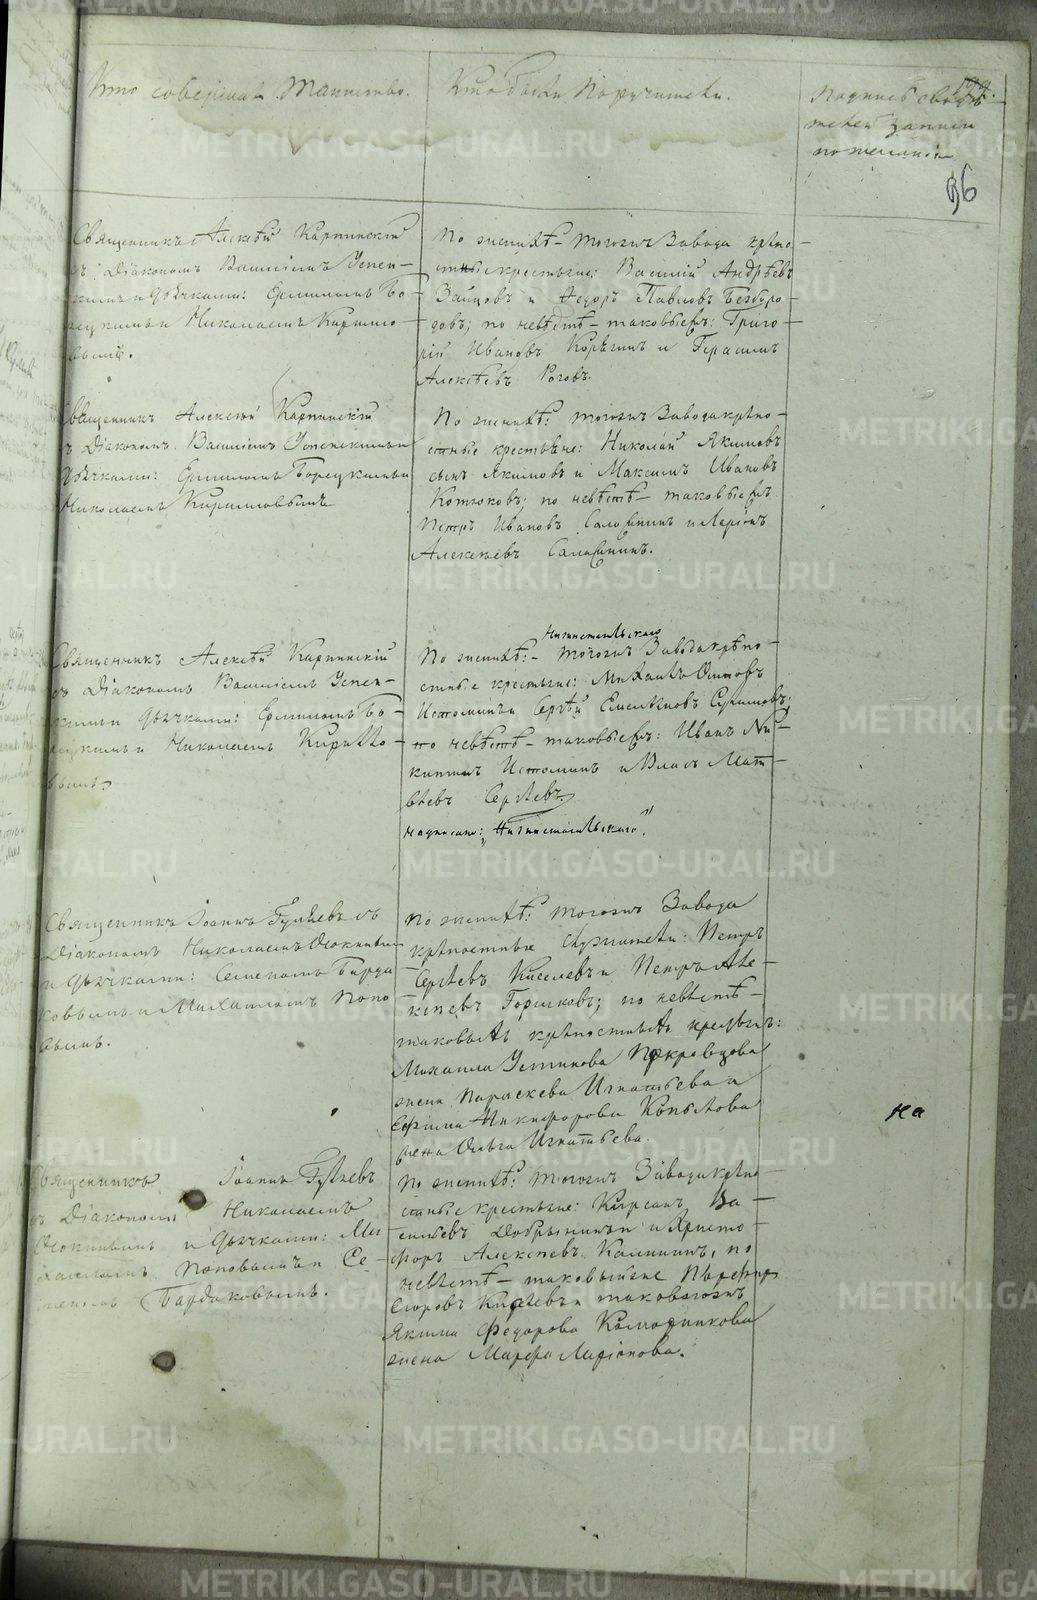 Кто совершал Таинство.
Кто были Поручители.
Подпись свидѣ-
телей записи
по желанію
96
Священникъ Алексѣй Карпинскій
съ Діакономъ Василіемъ Успен-
скимъ и Дьячками: Ермиломъ Бо-
рецкимъ и Николаемъ Кирило-
вымъ.
По женихѣ - тогожъ Завода крѣпо-
стные крестьяне: Василій Андреевъ
Зайцовъ и Ѳедоръ Павловъ Безборо-
довъ; по невѣстѣ - таковыежъ: Григо-
рій Ивановъ Корѣлинъ и Герасимъ
Алексѣевъ Роговъ.
Священникъ Алексѣй Карпинскій
съ Діакономъ Василіемъ Успенскимъ и
Дьячками: Ермиломъ Борецкимъ и
Николаемъ Кириловымъ
По женихѣ: тогожъ Завода крѣпо-
стные крестьяне: Николай Якимовъ
сынъ Якимовъ и Максимъ Ивановъ
Котюковъ; по невѣстѣ - таковыежъ
Петръ Ивановъ и Ларіонъ
Алексѣевъ
Священникъ Алексѣй Карпинскій
съ Діакономъ Василіемъ Успен-
скимъ и Дьячками: Ермиломъ Бо-
рецкимъ и Николаемъ Кирило-
вымъ.
Нижнетагильскаго
По женихѣ: - тогожъ Завода крѣпо-
стные крестьяне: Михаилъ Осиповъ
Истоминъ и Сергѣй Емельяновъ
по невѣстѣ - таковыежъ: Иванъ Ни-
китинъ Истоминъ и Власъ Мат-
вѣевъ Сергѣевъ.
надписано: „Нижнетагильскаго".
Священникъ Іоаннъ Гуляевъ съ
Діакономъ Николаемъ
и Дьячками: Семеномъ Барда-
ковымъ и Михаиломъ Попо-
вымъ.
По женихѣ: тогожъ Завода
крѣпостные служители: Петръ
Сергѣевъ Киселевъ и Петръ Але-
ксѣевъ Горшковъ; по невѣстѣ -
таковыхъ крѣпостныхъ крестьянъ:
Михаила Устинова
жена Параскева Игнатьева и
Никифорова Копылова
жена Ольга Игнатьева.
Священникъ Іоаннъ Гуляевъ
съ Діакономъ Николаемъ
и Дьячками: Ми-
хаиломъ Поповымъ и Се-
меномъ Бардаковымъ.
По женихѣ: тогожъ Завода крѣпо-
стные крестьяне: Кирсанъ Ва-
сильевъ Добрынинъ и Христо-
форъ Алексѣевъ Калининъ, по
невѣстѣ - таковыйже Порфиръ
Егоровъ и таковагожъ
Якима Федорова Колмогорникова
жена Марфа Ларіонова.
на
METRIKI.GASO-URAL.RU